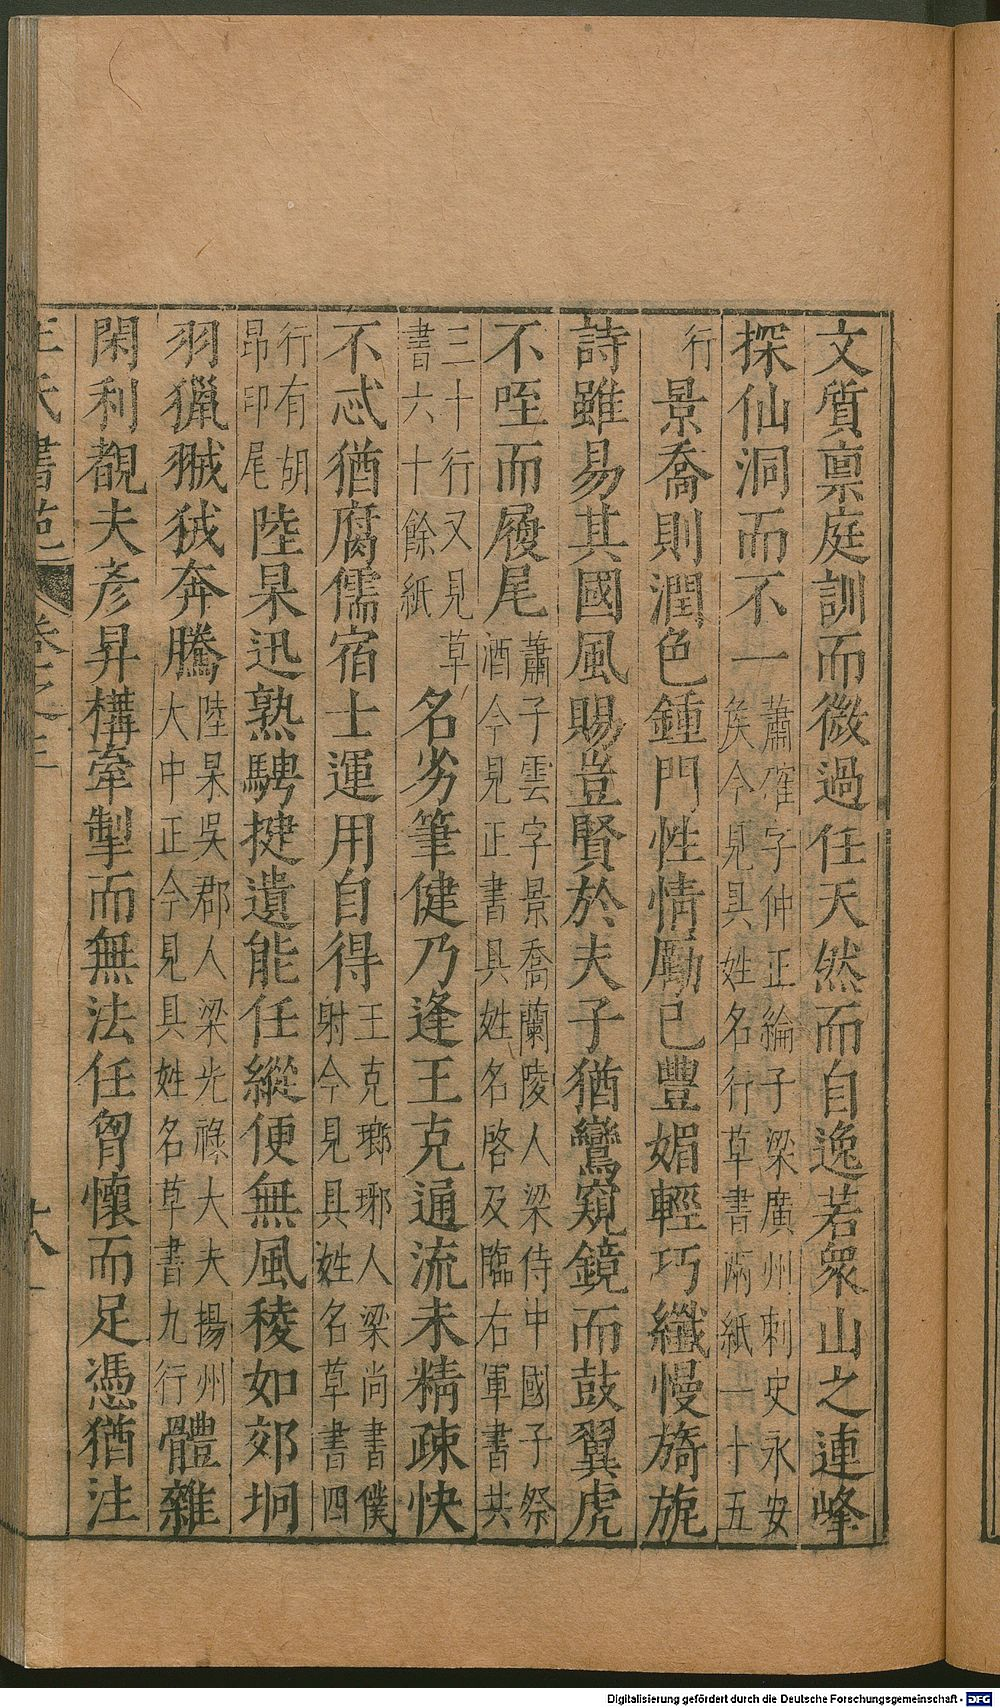 文質禀庭訓而微過任天然而自逸若衆山之連峰
探仙洞而不一蕭確字仲正綸子梁廣州刺史永安
矦今見具姓名行草書兩紙一十五
行景喬則潤色鍾門性情勵己豐媚輕巧纖慢旖旎
詩雖易其國風賜豈賢於夫子猶鸞窺鏡而鼓翼虎
不咥而履尾蕭子雲字景喬蘭陵人梁侍中國子祭
酒今見正書具姓名啓及臨右軍書共
三十行又見草
書六十餘紙
名劣筆健乃逢王克通流未精疎快
不忒猶腐儒宿士運用自得王克瑯琊人梁尚書僕
射今見具姓名草書四
行有胡
昂印尾
陸杲迅熟騁揵遺能任縱便無風稜如郊坰
羽獵翍狘奔騰陸杲吳郡人梁光祿大夫揚州
大中正今見具姓名草書九行
體雜
閑利觀夫彥昇構牽掣而無法任胷懷而足憑猶注
王氏書苑 卷之三 十八
Digitalisierung gefördert durch die Deutsche Forschungsgemeinschaft - DFG